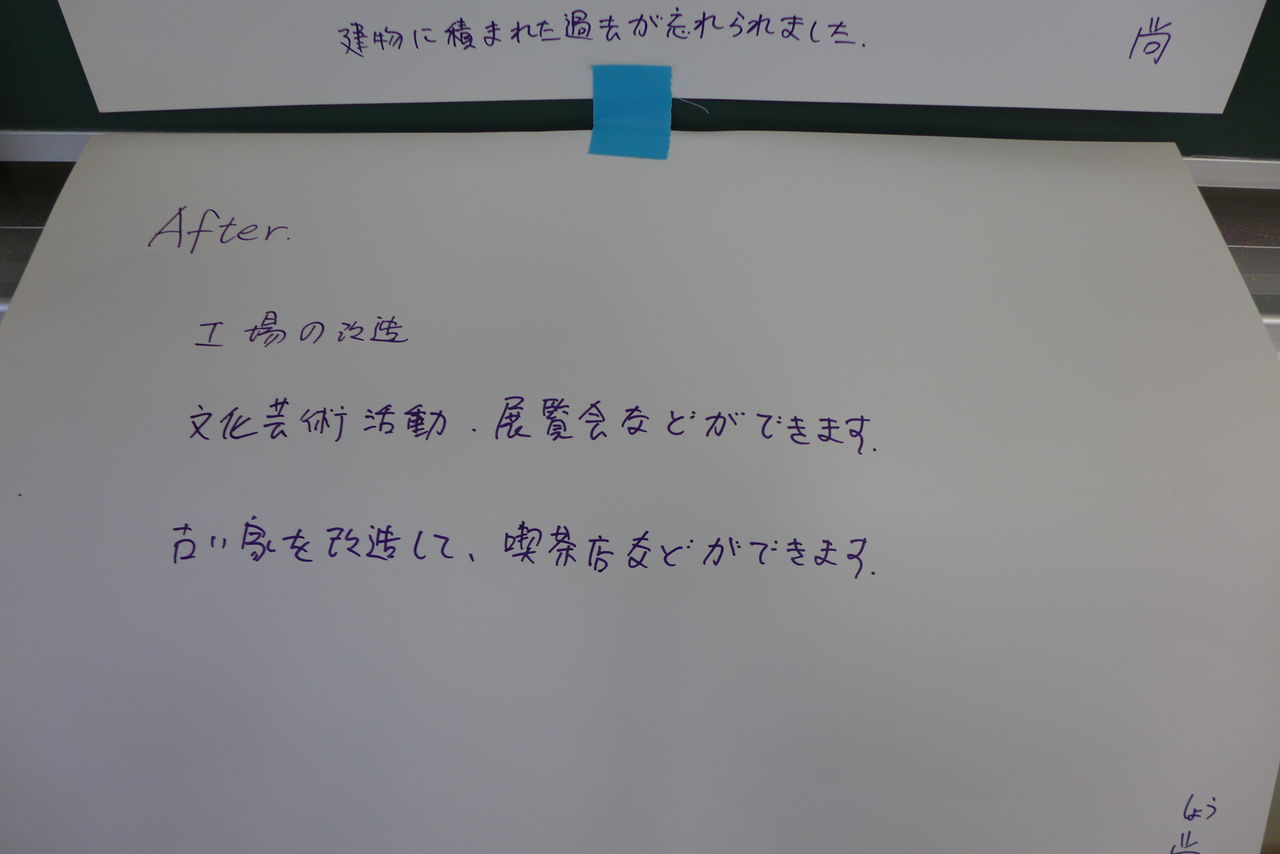 建物に積まれた過去が忘れられました.
尚
After.
工場の改造
文化芸術活動.展覧会などができます.
古い家を改造して、喫茶店などができます.
しょう
尚